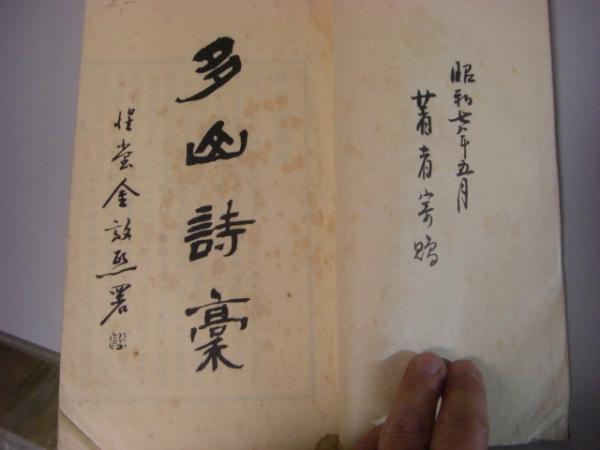 昭和七年五月
著者寄贈
多山詩稾
惺堂金敦熙署